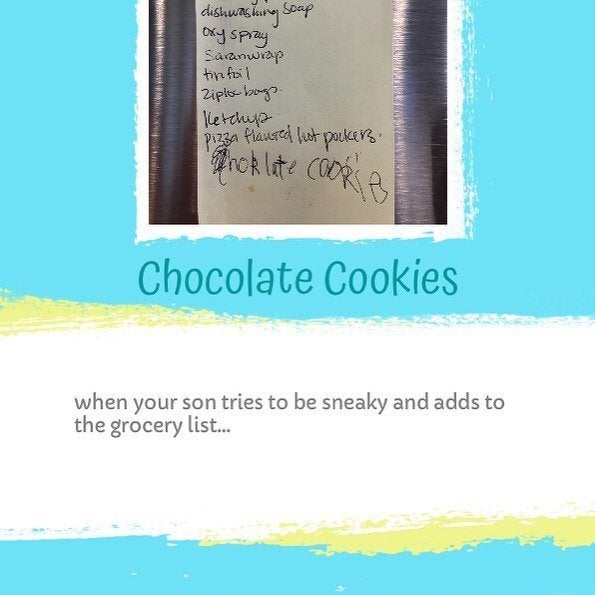 dishwashing soap
oxy spray
Saranwrap
tin foil
ziploc bags.
Ketchup
pizza flavored hot pockets.
choklate cookie
Chocolate Cookies
when your son tries to be sneaky and adds to
the grocery list...